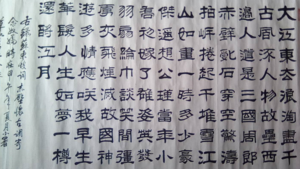 大江東去浪淘盡千
古風流人物故壘西
邊人道是三國周郎
赤壁亂石穿空驚濤
拍岸捲起千堆雪江
山如畫一時多少豪
傑遙想公瑾當年小
喬初嫁了雄姿英發
羽扇綸巾談笑間彊
虜灰飛煙滅故國神
遊多情應咲我早生
華髮人生如夢一樽
還酹江月